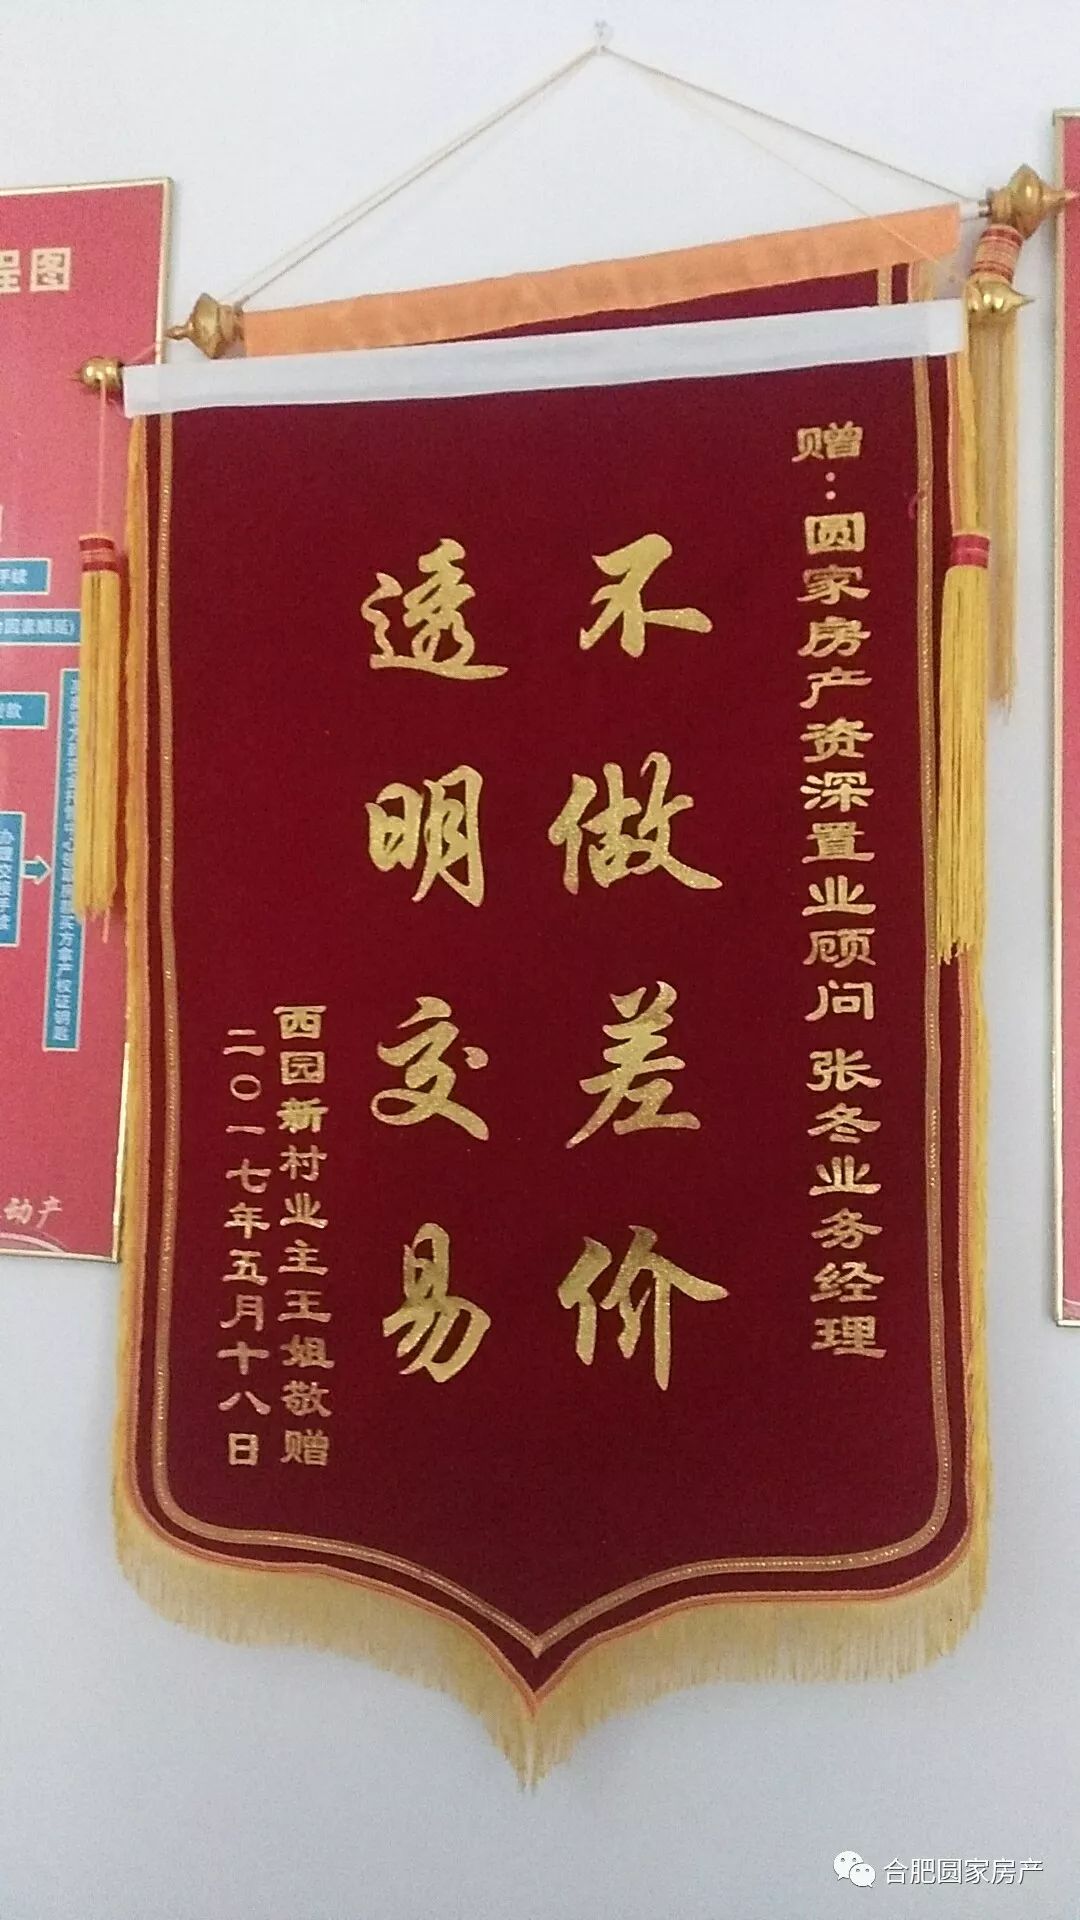 赠：圆家房产资深置业顾问 张冬业务经理
不做差价
透明交易
西园新村业主王姐敬赠
二〇一七年五月十八日
程图
手续
因素顺延)
款
办理交接手续
买方拿产权证钥匙
动产
合肥圆家房产